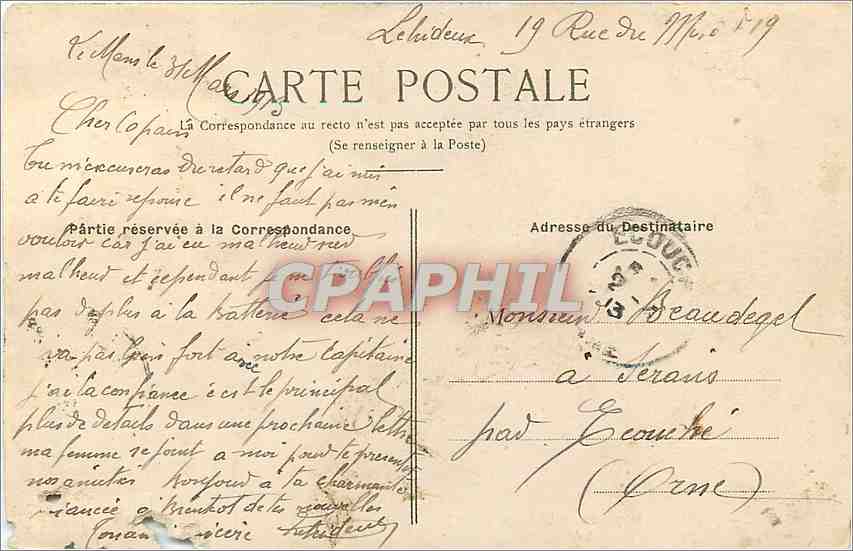 Lehideux 19 Rue du
Le Mans le 31 Mars 1913
CARTE POSTALE
Cher Copain
La Correspondance au recto n'est pas acceptée par tous les pays étrangers
(Se renseigner à la Poste)
Tu m'excuseras du retard que j'ai mis
a te faire reponse il ne faut pas m'en
Partie réservée à la Correspondance
Adresse du Destinataire
vouloir car j'ai eu malheur sur
malheur et cependant
pas de plus à la Batterie cela ne
va pas bien fort avec notre Capitaine
j'ai la confiance c'est le principal
plus de details dans une prochaine lettre
ma femme se joint a moi pour te presenter
nos amitiés Bonjour a ta charmante
fiancée a Bientot de tes nouvelles
Ton ami sincère Lehideux
ECOUCHÉ
CPAPHIL
Monsieur Beaudegel
a Serans
par Ecouché
(Orne)